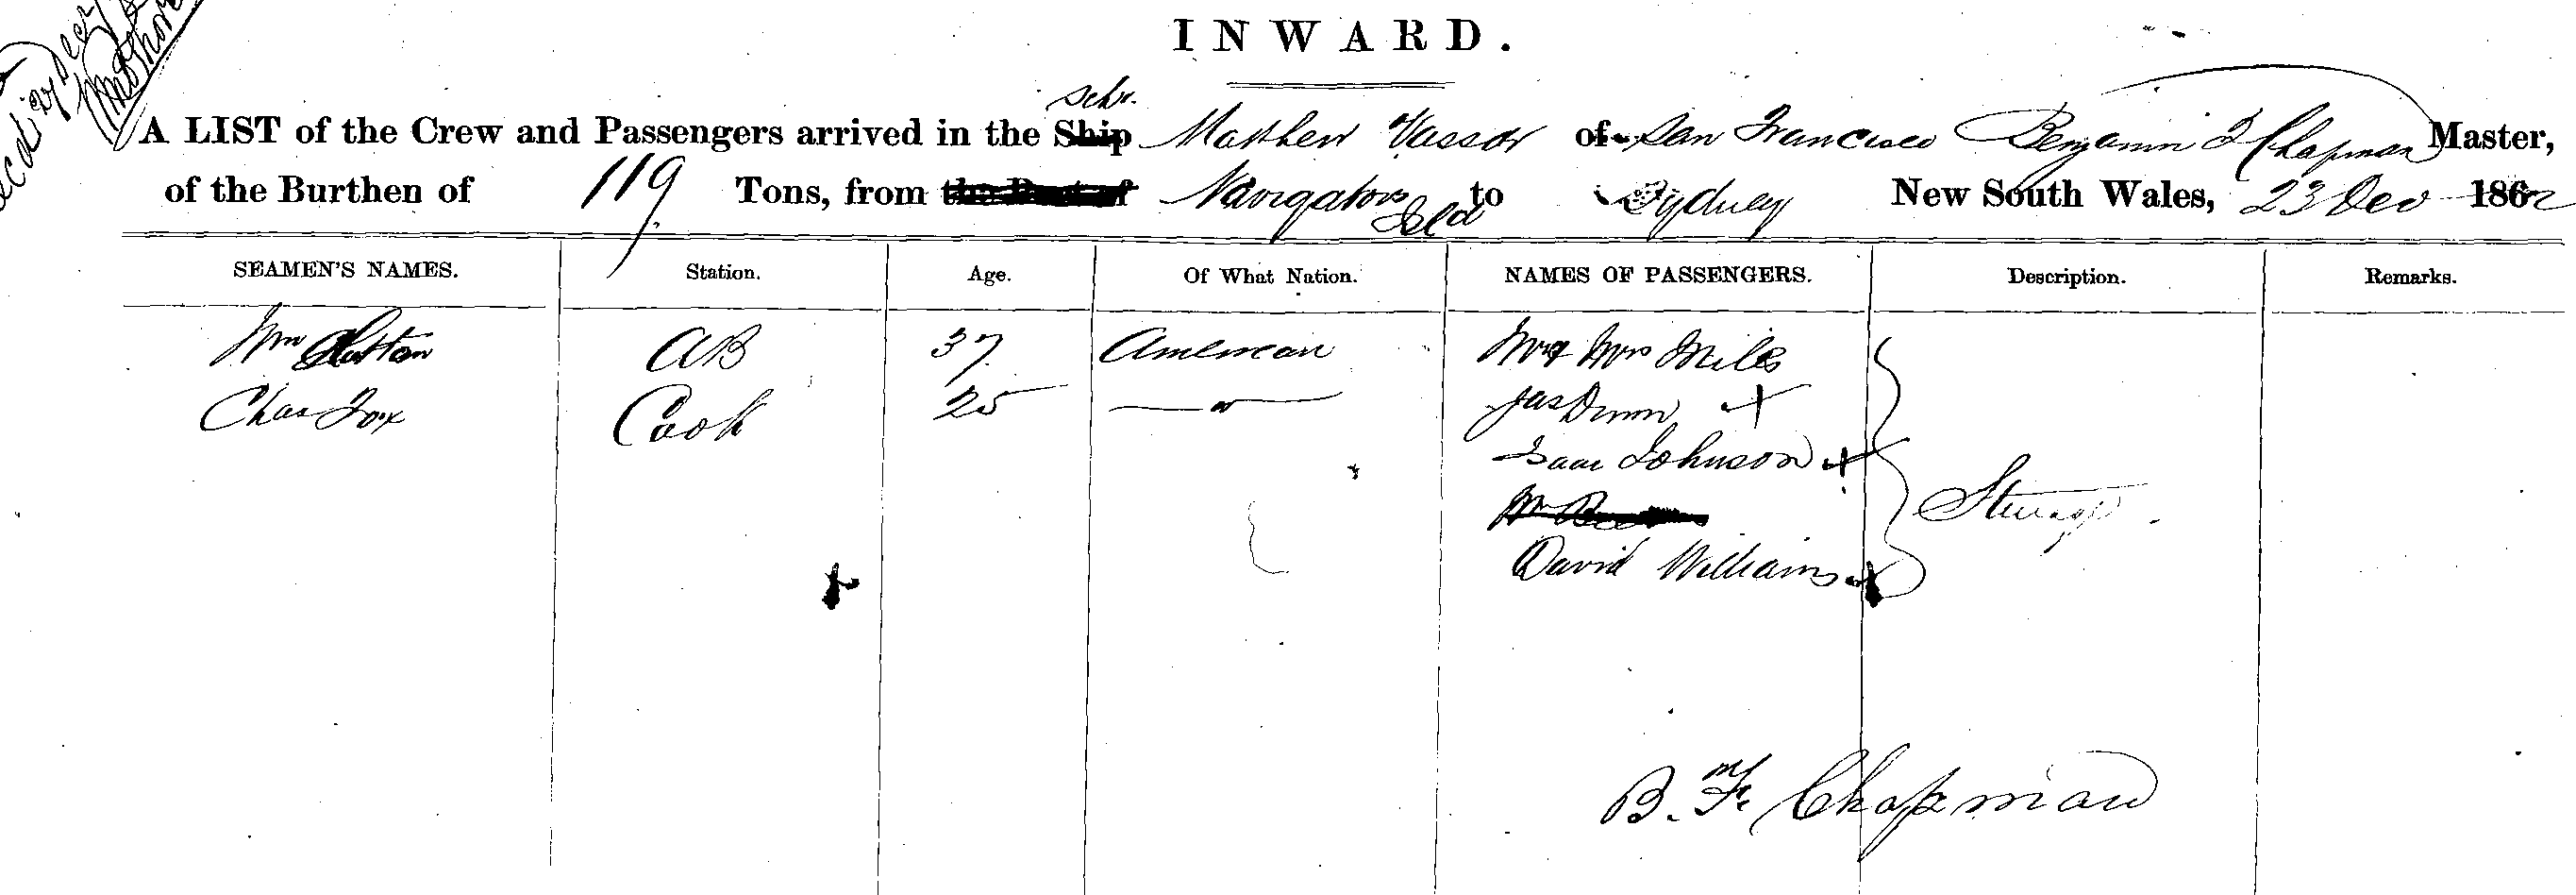 INWARD.
schr.
A LIST of the Crew and Passengers arrived in the Ship Matthew Vassor of San Francisco Benjamin F Chapman Master,
of the Burthen of 119 Tons, from the Port of Navigators Isld to Sydney New South Wales, 23 Dec 1862
SEAMEN'S NAMES. Station. Age. Of What Nation. NAMES OF PASSENGERS. Description. Remarks.
Wm AB 37 American Mr & Mrs Miles
Chas Fox Cook 25 — " — Jas Dunn X
Isaac Johnson X
Wm
David Williams X
Steerage
B. F. Chapman